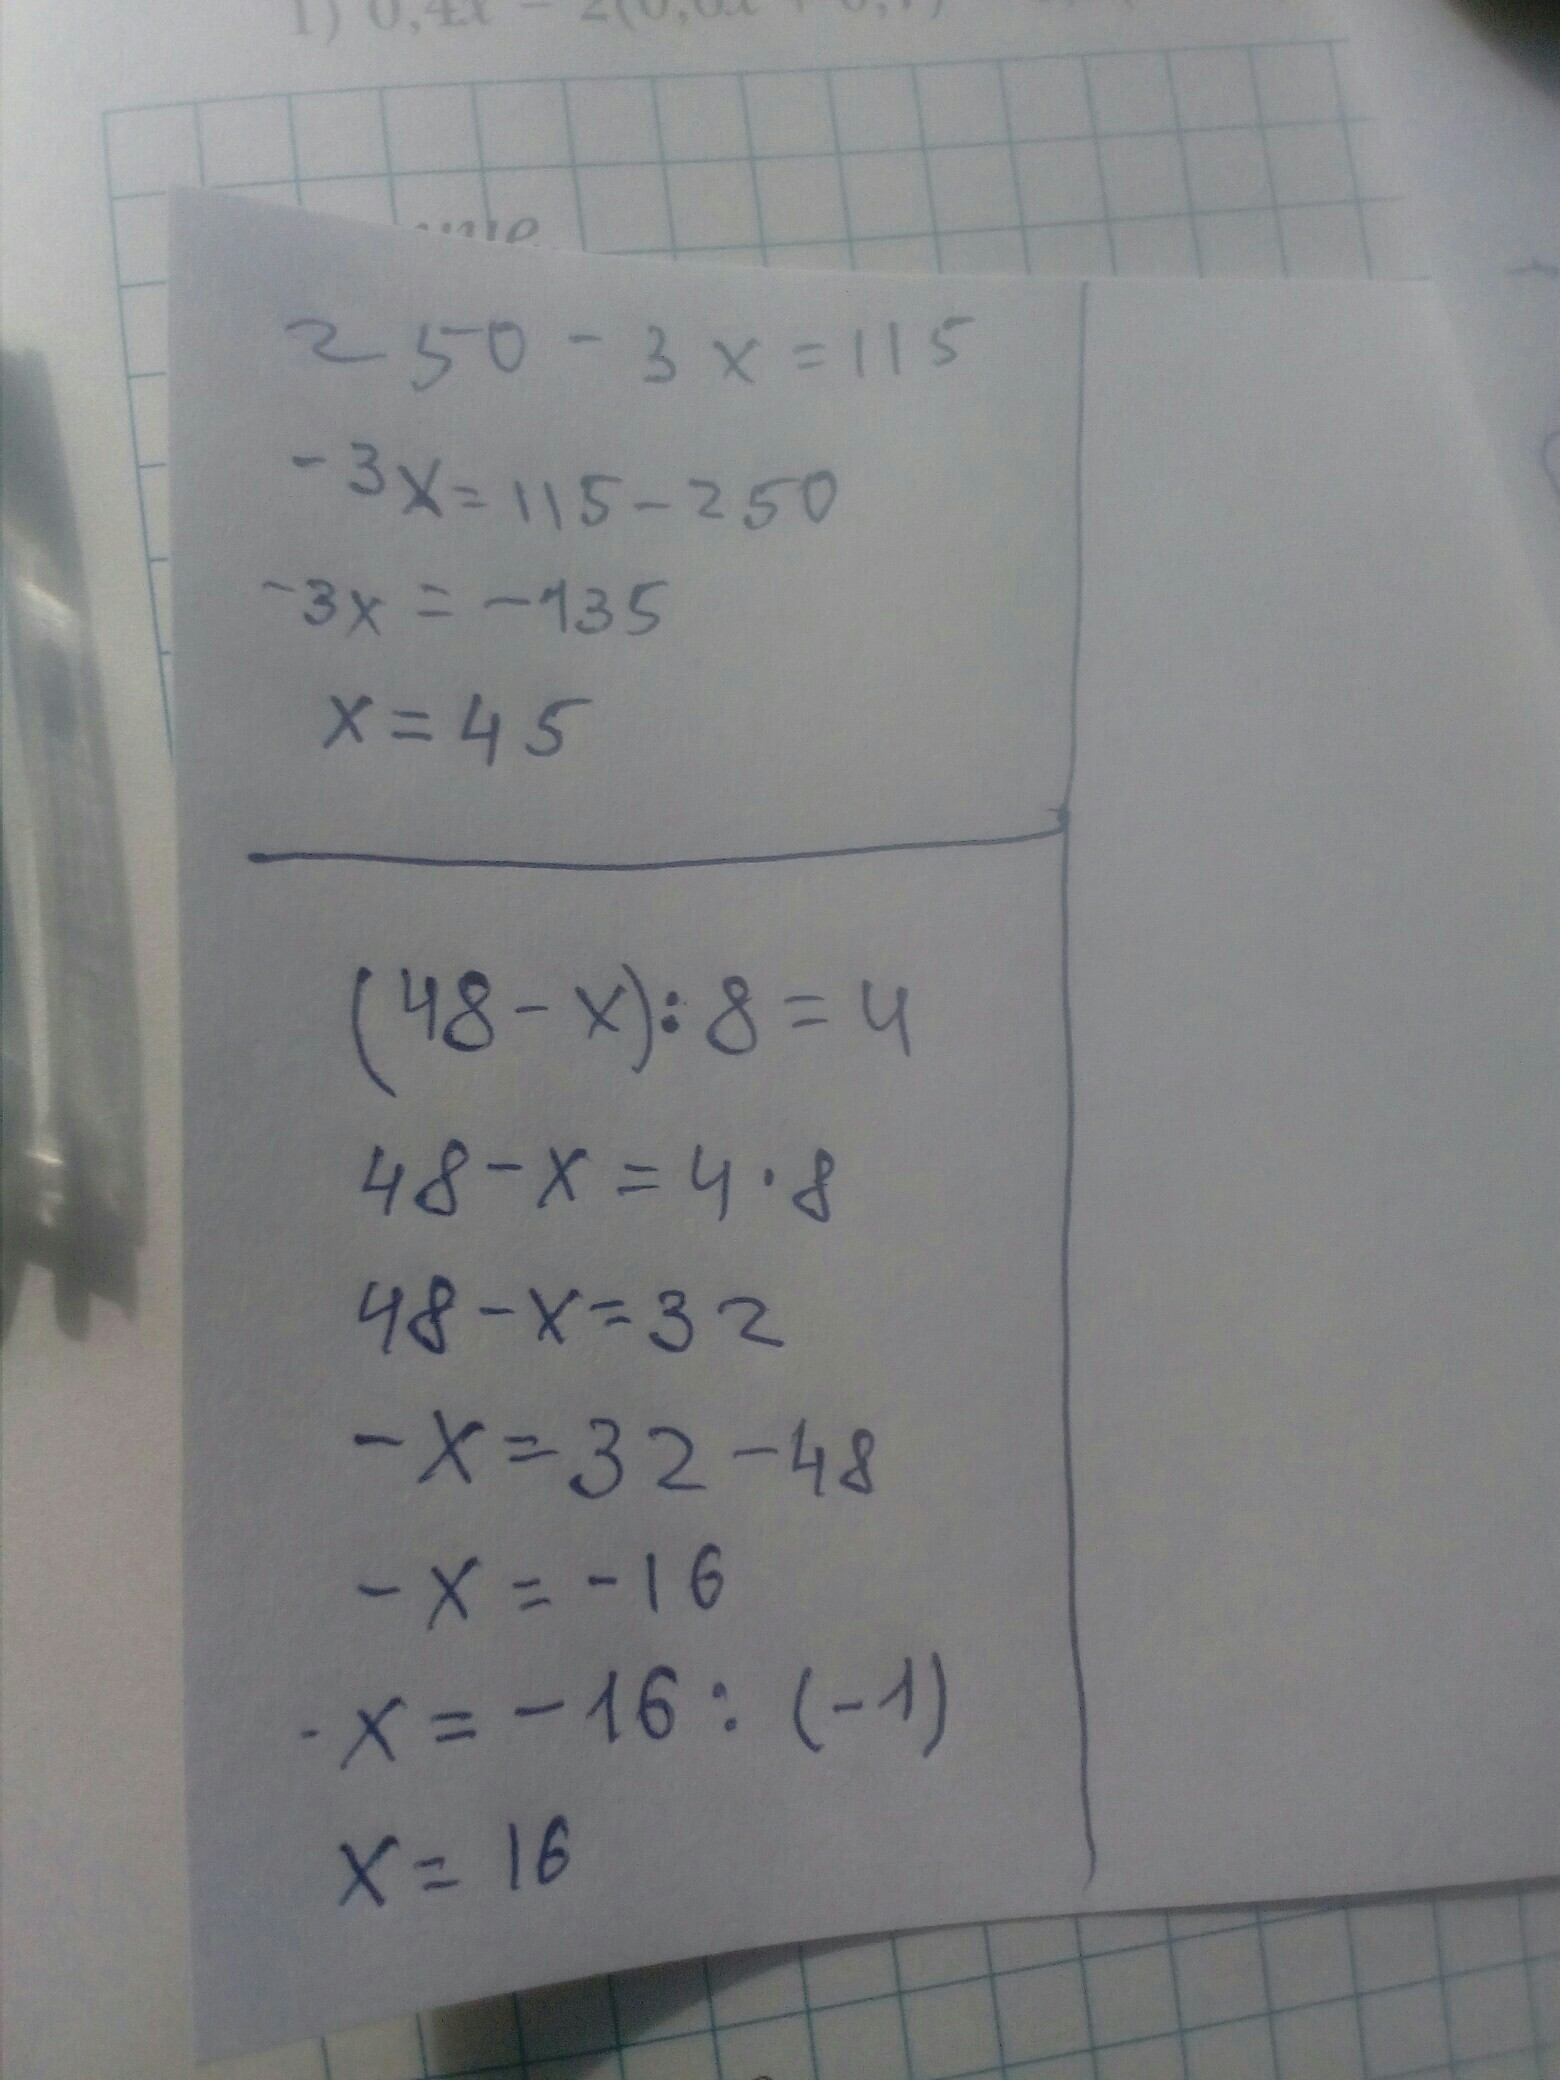 1) 0,4x − 2(0,6x + 0,7)
250 - 3x = 115
-3x = 115 - 250
-3x = -135
x = 45
(48 - x) : 8 = 4
48 - x = 4 · 8
48 - x = 32
- x = 32 - 48
- x = -16
- x = -16 : (-1)
x = 16